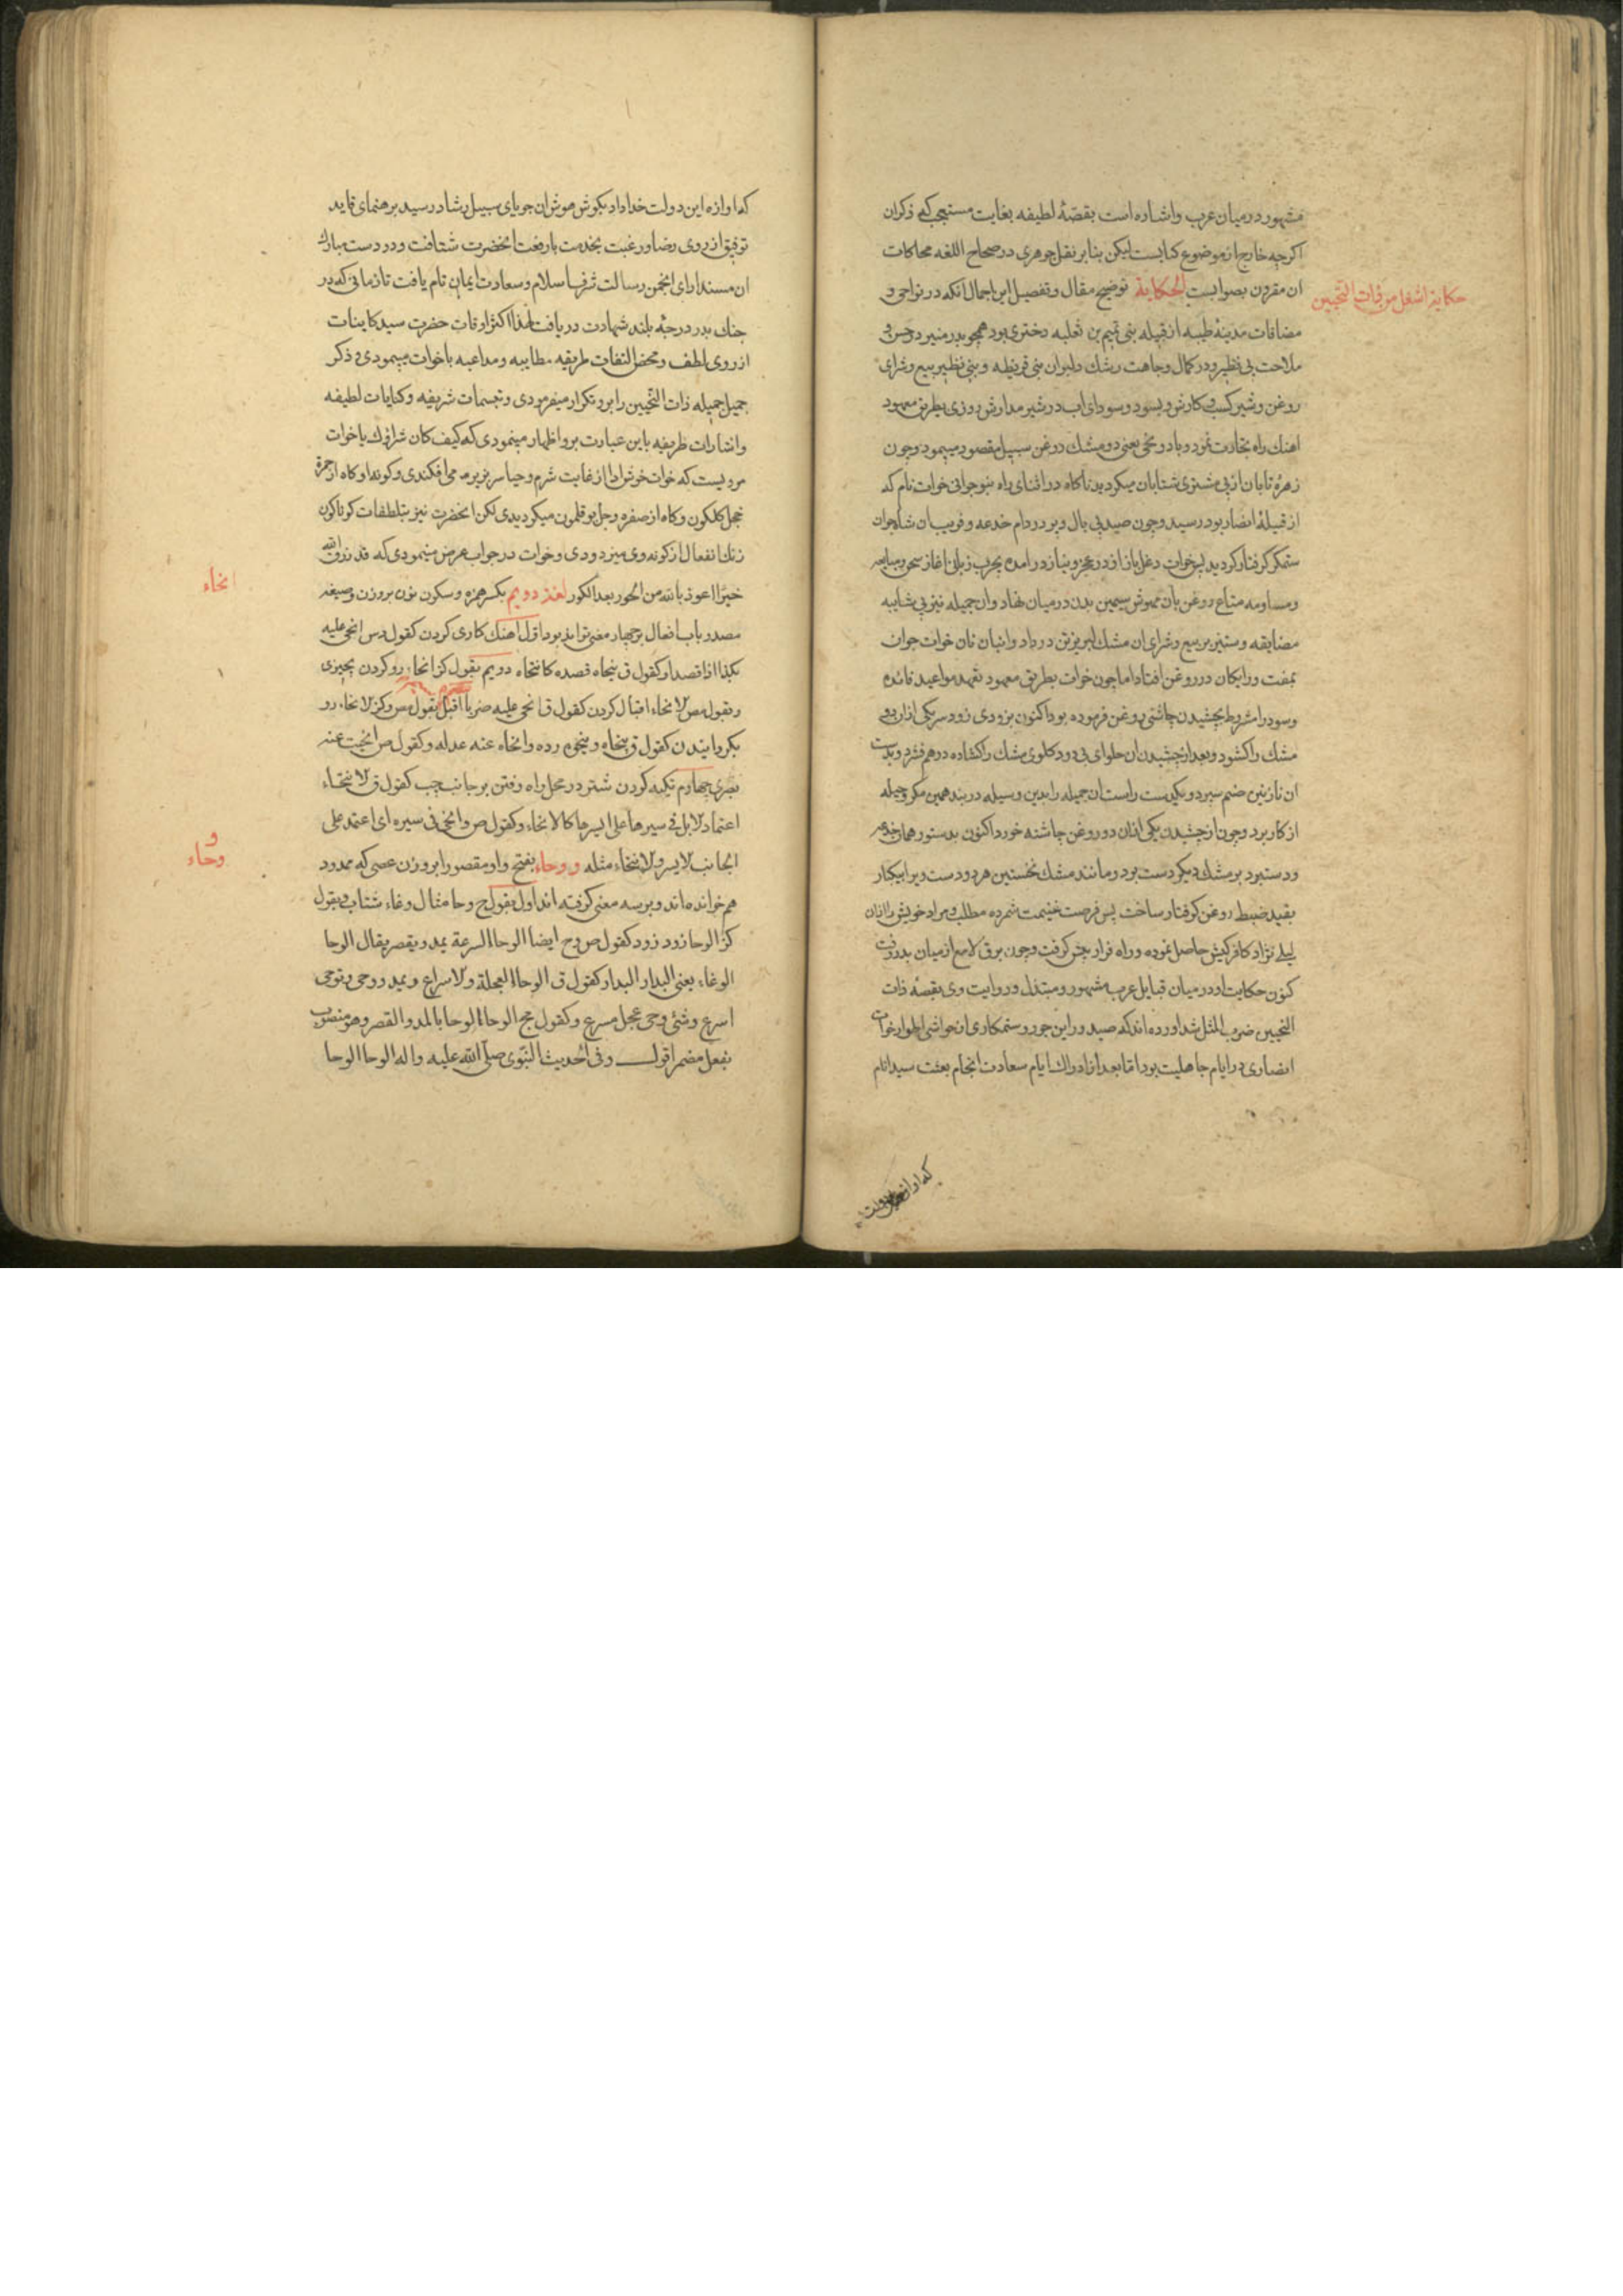 مشهور در میان عرب واشاره است بقصّهٔ لطیفه بغایت مستعجب که ذکران
اکرچه خارج از موضوع کتابست لیکن بنابر نقل جوهری در صحاح اللغه محاکات
ان مقرون بصوابست الحکایة توضیح مقال وتفصیل این اجمال انکه در نواحی و
حکایة اشغل من ذات النّحیین
مضافات مدینهٔ طیبه از قبیله بنی تمیم بن ثعلبه دختری بود همچو بدر منیر در حسن و
ملاحت بی نظیر ودر کمال وجاهت رشك دلبران بنی قریظه و بنی نظیر ببیع وشرای
روغن وشیر کسب وکارش وبسود وسودای اب در شیر مدارش روزی بطریق معهود
اهنك راه تجارت نمود وبا دو نحی یعنی دو مشك روغن سبیل مقصود میپیمود وچون
زهرهٔ تابان از پی مشتری شتابان میکردید ناکاه در اثنای راه بنوجوانی خوات نام که
از قبیلهٔ انصار بود رسید وچون صید بی بال وپر در دام خدعه وفریب ان شاه جوان
ستمکر کرفتار کردید پس خوات دغل باز از در عجز ونیاز در امده بچرب زبانی اغاز
ومساومه متاع روغن بان مهوش سیمین بدن در میان نهاد وان جمیله نیز بی شایبه
مضایقه وستیز بر بیع وشرای ان مشك لبریز تن در داد وانبان نان خوات جوان
بمفت ورایکان در روغن افتاد اما چون خوات بطریق معهود تعهد مواعید فائده
وسود را مشروط بچشیدن چاشنی روغن فرموده بود اکنون بزودی زود سر یکی از ان دو
مشك را کشود وبعد از چشیدن ان حلوای بی دود کلوی مشك را کشاده در هم فشرد وبدست
ان نازنین صنم سپرد وبیکدست راست ان جمیله را بدین وسیله در بند همین مکر وحیله
از کار برد وچون از چشیدن یکی از ان دو روغن چاشنه خورد اکنون بدستور همان خدعه
ودستبرد بر مشك دیکر دست برد ومانند مشك نخستین هر دو دست ویرا بیکبار
بقید ضبط روغن کرفتار ساخت پس فرصت غنیمت شمرده مطلب ومراد خویش را از ان
لیلی نژاد کافرکیش حاصل نموده وراه فرار پیش کرفت وچون برق لامع از میان بدر رفت
کنون حکایت او در میان قبایل عرب مشهور ومبتذل وروایت وی بقصهٔ ذات
النحیین ضرب المثل شد اورده اند که صدور این جور وستمکاری از حواشی اطوار خوات
انصاری در ایام جاهلیت بود اما بعد از ادراك ایام سعادت انجام بعثت سید انام
که اوازه این دولت
که اوازه این دولت خداداد بکوش هوش ان جویای سبیل رشاد رسید برهنمای قاید
توفیق از روی رضا ورغبت بخدمت بارفعت انحضرت شتافت ودر دست مبارك
ان مسند ارای انجمن رسالت شرف اسلام وسعادت ایمان تام یافت تا زمانی که در
جنك بدر درجهٔ بلند شهادت دریافت لهذا اکثر اوقات حضرت سید کاینات
از روی لطف ومحض التفات طریقه مطایبه ومداعبه با خوات میپیمودی وذکر
جمیل جمیله ذات النّحیین را برو تکرار میفرمودی وتبسمات شریفه وکنایات لطیفه
واشارات ظریفه باین عبارت برو اظهار مینمودی که کیف کان شرادك یا خوات
مرویست که خوات خوش ادا از غایت شرم وحیا سر بزیر می افکندی وکونه او کاه از حمرة
خجل کلکون وکاه از صفره وجل بو قلمون میکردیدی لکن انحضرت نیز بتلطفات کوناکون
رنك انفعال از کونه وی میزدودی وخوات در جواب عرض مینمودی که قد رزق الله
خیرًا اعوذ بالله من الحور بعد الکور لغز دویم بکسر همزه وسکون نون بر وزن وصیغه
انحاء
مصدر باب افعال بر چهار معنی تواند بود اول اهنك کاری کردن کقول س انحی علیه
بکذا اذا قصد او کقول ق ینحاه قصده کانتحاه دویم بقول کز انحاء رو کردن بچیزی
وبقول مص الانحاء اقبال کردن کقول ق انحی علیه ضربا اقبل بقول مس وکز الانحاء رو
بکردانیدن کقول ق ینحاه وینحوه رده وانحاه عنه عدله وکقول ص انحیت عنه
بصری چهارم تکیه کردن شتر در محل راه رفتن بر جانب چپ کقول ق الانتحاء
اعتماد الابل فی سیرها علی ایسرها کالانحاء وکقول ص وانحی فی سیره ای اعتمد علی
الجانب الایسر والانتحاء مثله و وحاء بفتح واو مقصورا بر وزن عصی که ممدود
و
وحاء
هم خوانده اند وبر سه معنی کرفته اند اول بقول ح وحا مثال وغاء شتاب وبقول
کز الوحا زود زود کقول ص وح ایضا الوحا السرعة یمد ویقصر یقال الوحا
الوغاء یعنی البدار البدار کقول ق الوحاء العجلة والاسراع ویمد ووحی وتوحی
اسرع وشئ وحی عجل مسرع وکقول مج الوحاء الوحا بالمد والقصر وهو منصوب
بفعل مضمر اقول وفی الحدیث النّبوی صلّی الله علیه واله الوحا الوحا